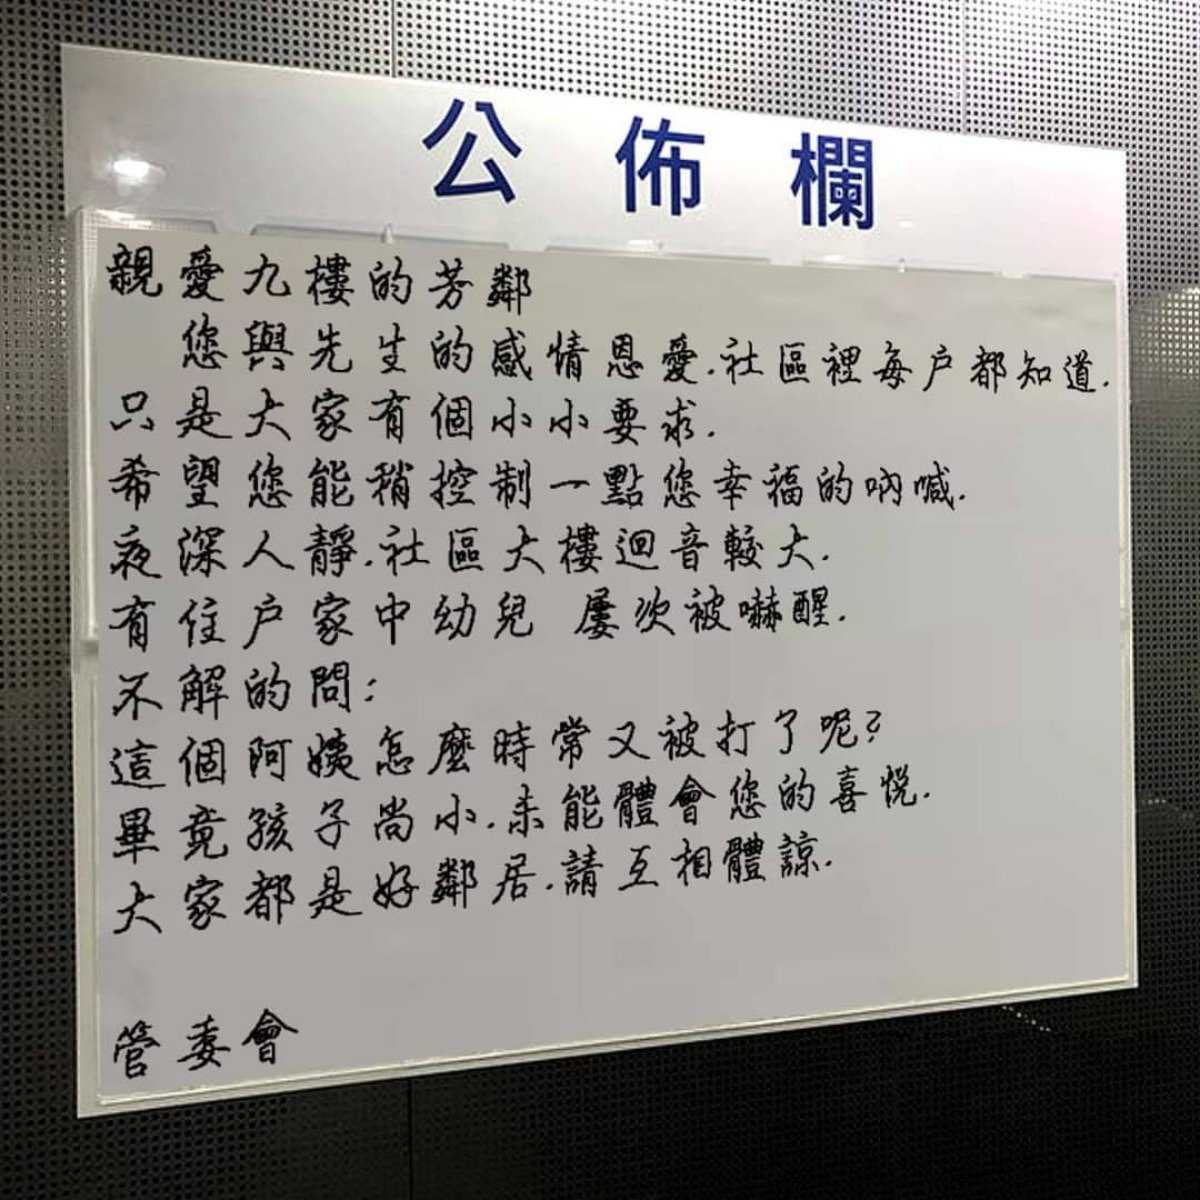 公佈欄
親愛九樓的芳鄰
您與先生的感情恩愛.社區裡每户都知道.
只是大家有個小小要求.
希望您能稍控制一點您幸福的吶喊.
夜深人靜.社區大樓迴音較大.
有住户家中幼兒 屢次被嚇醒.
不解的問:
這個阿姨怎麼時常又被打了呢?
畢竟孩子尚小.未能體會您的喜悅.
大家都是好鄰居.請互相體諒.
管委會